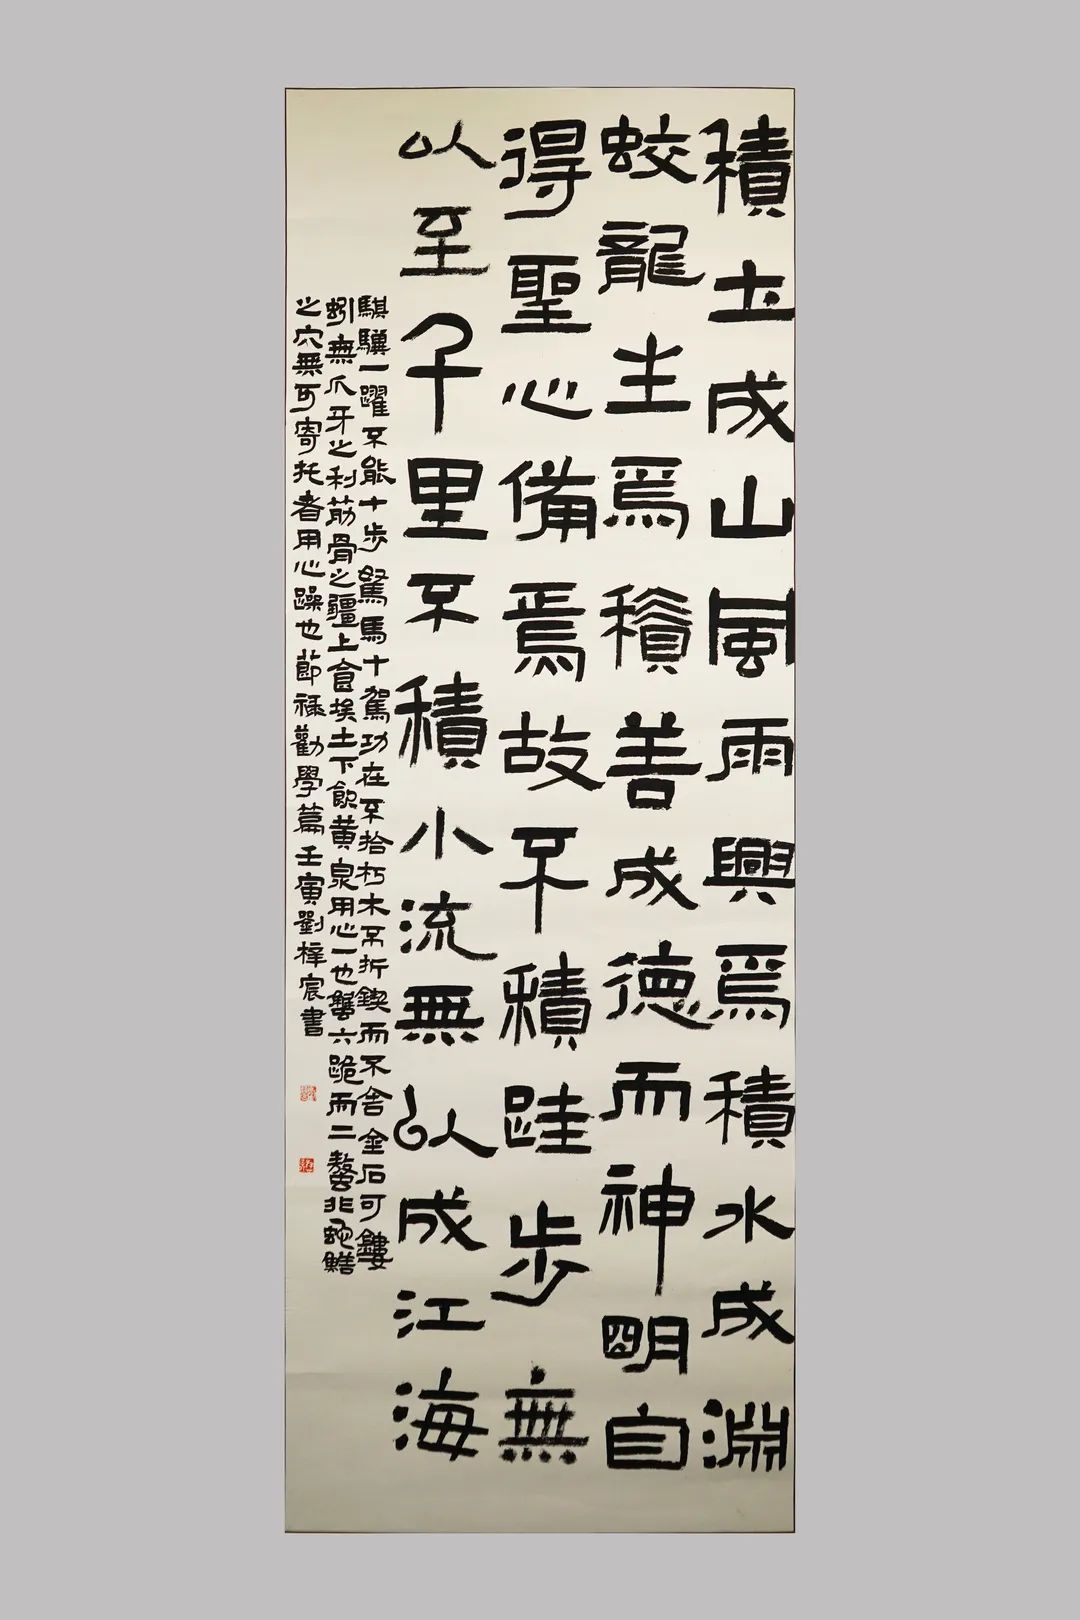 積土成山風雨興焉積水成淵
蛟龍生焉積善成德而神明自
得聖心備焉故不積跬步無
以至千里不積小流無以成江海
騏驥一躍不能十步駑馬十駕功在不拾朽木不折鍥而不舍金石可鏤
蚓無爪牙之利筋骨之疆上食埃土下飲黃泉用心一也蟹六跪而二螯非蛇鱔
之穴無可寄托者用心躁也節祿勸學篇壬寅劉梓宸書